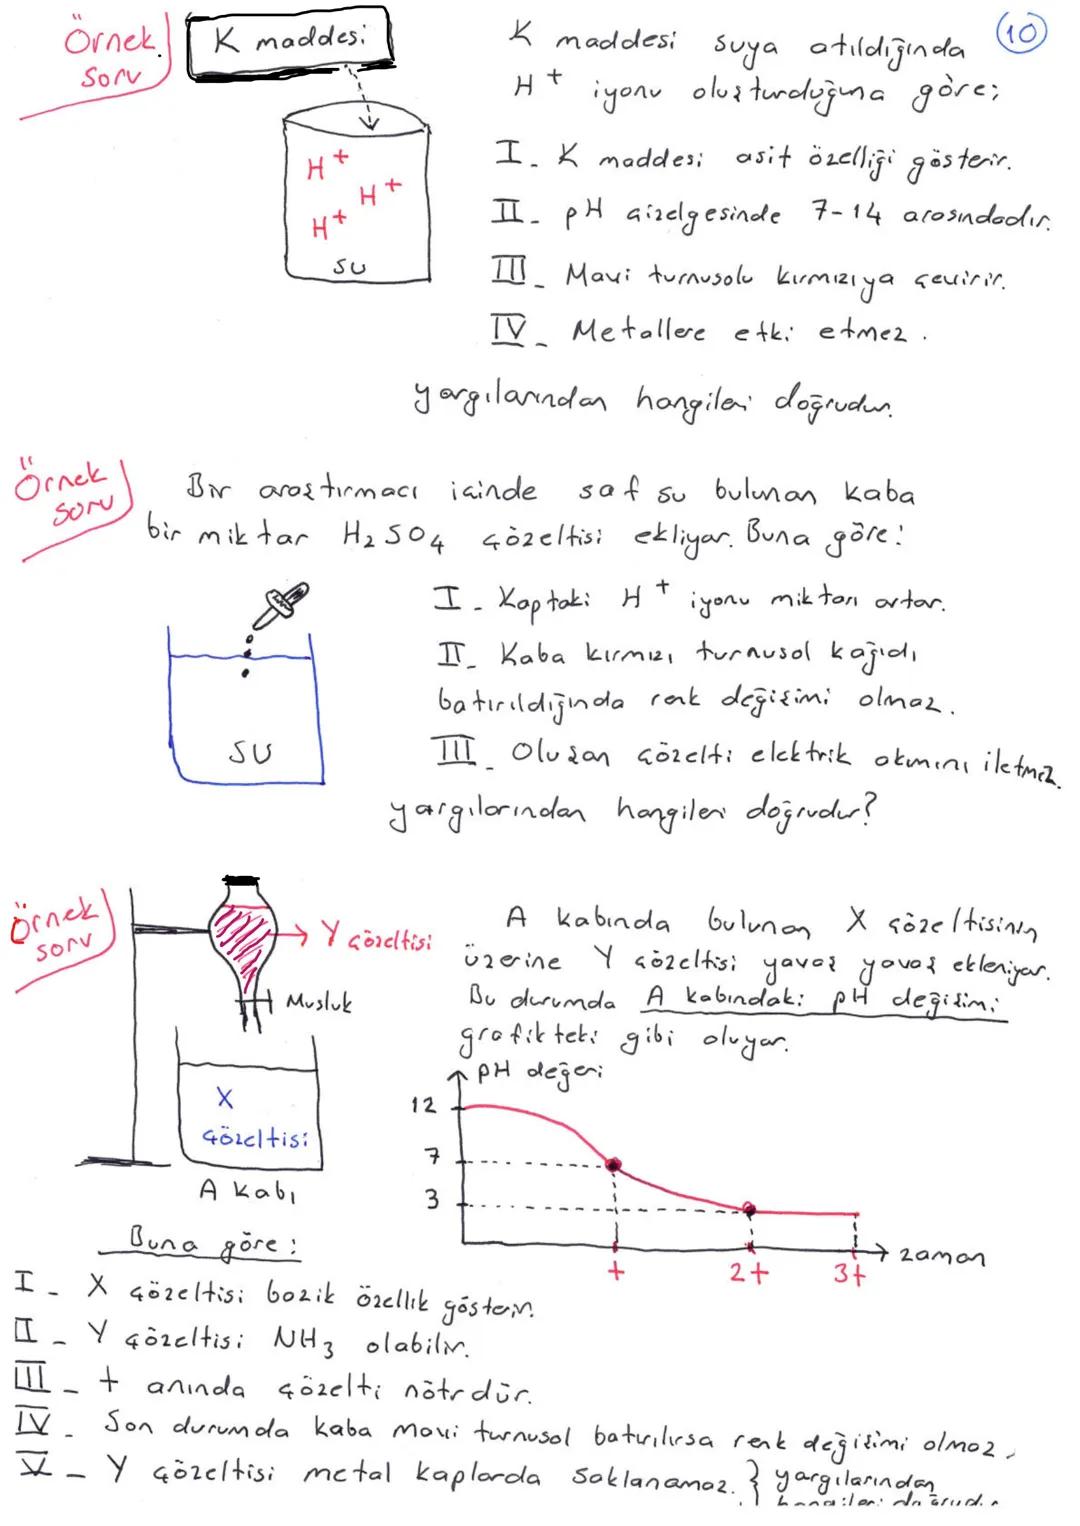 Örnek soru
K maddesi
H+
H+
H+
SU
10
K maddesi suya atıldığında
H+ iyonu oluşturduğuna göre;
I- K maddesi asit özelliği gösterir.
II- pH çizelgesinde 7-14 arasındadır.
III- Mavi turnusolu kırmızıya çevirir.
IV- Metallere etki etmez.
yargılarından hangileri doğrudur.
Örnek soru
Bir araştırmacı içinde saf su bulunan kaba
bir miktar H2SO4 çözeltisi ekliyor. Buna göre:
SU
I- Kaptaki H+ iyonu miktarı artar.
II- Kaba kırmızı turnusol kağıdı
batırıldığında renk değişimi olmaz.
III- Oluşan çözelti elektrik akımını iletmez.
yargılarından hangileri doğrudur?
Örnek soru
Y çözeltisi
Musluk
X
çözeltisi
A kabı
A kabında bulunan X çözeltisinin
üzerine Y çözeltisi yavaş yavaş ekleniyor.
Bu durumda A kabındaki pH değişimi
grafikteki gibi oluyor.
pH değeri
12
7
3
t
2t
3t
zaman
Buna göre:
I- X çözeltisi bazik özellik gösterir.
II- Y çözeltisi NH3 olabilir.
III- t anında çözelti nötrdür.
IV- Son durumda kaba mavi turnusol batırılırsa renk değişimi olmaz.
V- Y çözeltisi metal kaplarda saklanamaz. } yargılarından
hangileri doğrudur